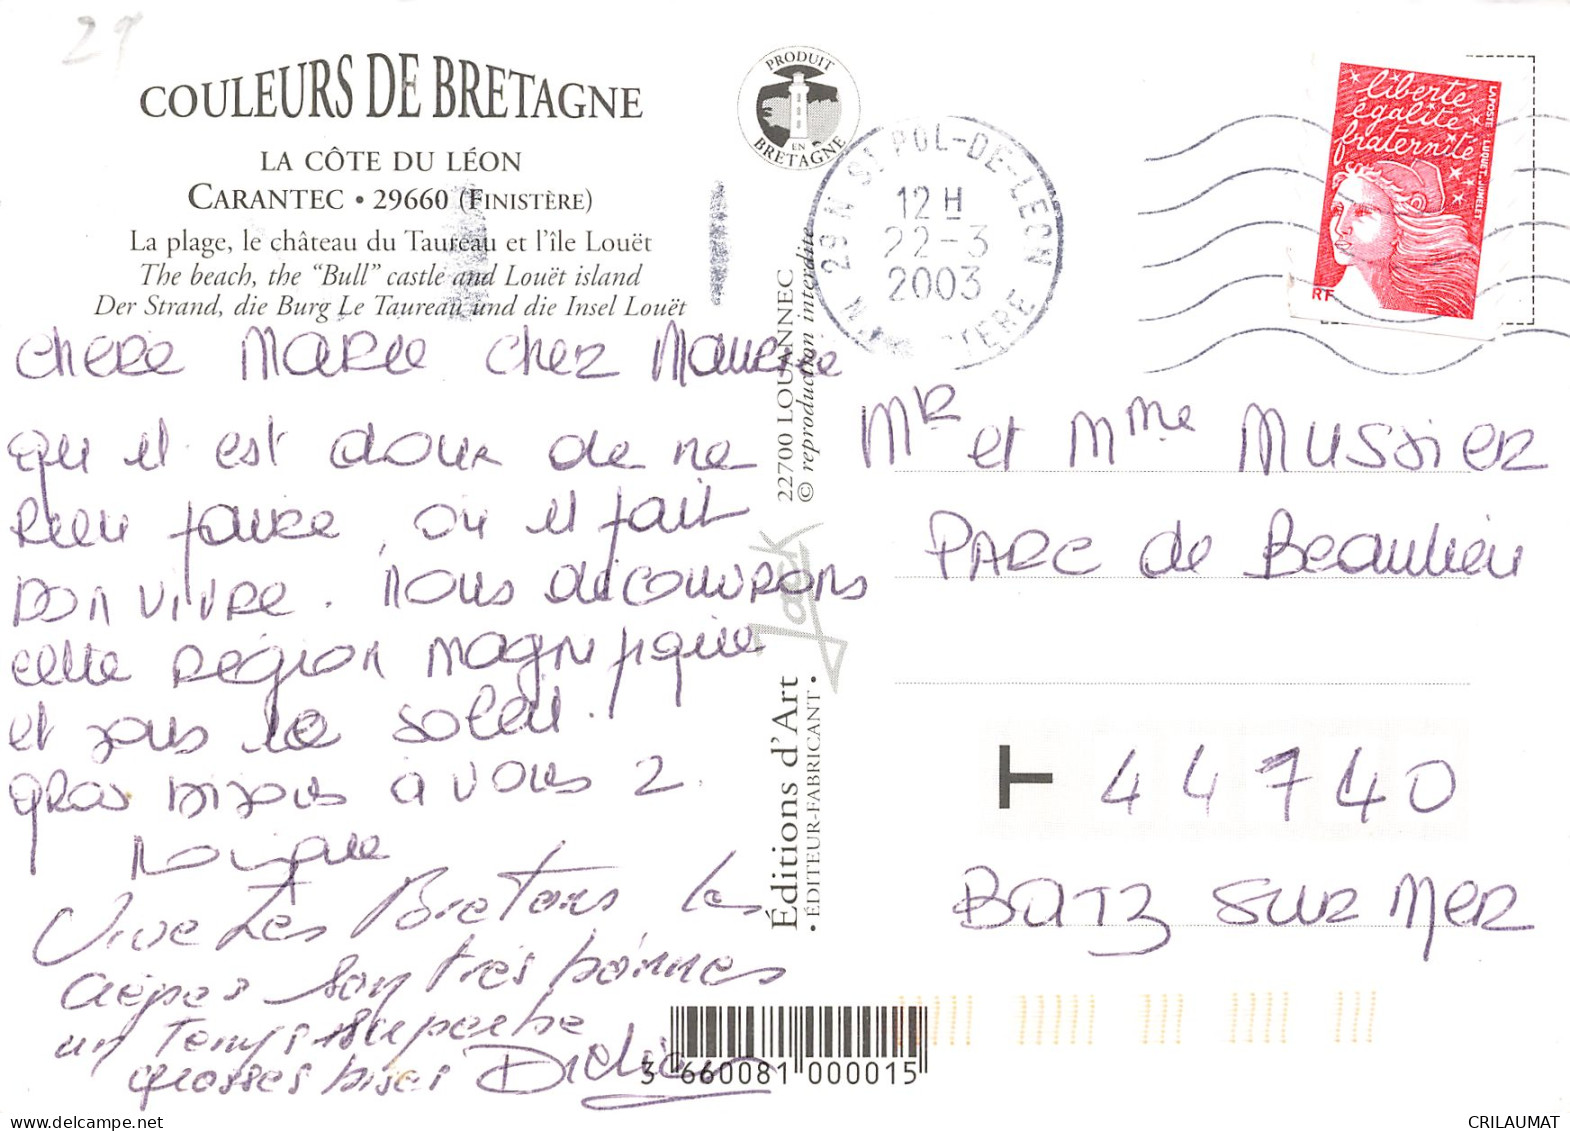 29
COULEURS DE BRETAGNE
LA CÔTE DU LÉON
CARANTEC • 29660 (FINISTÈRE)
La plage, le château du Taureau et l'île Louët
The beach, the "Bull" castle and Louët island
Der Strand, die Burg Le Taureau und die Insel Louët
CHERE MARIE CHER MAURICE
Qu'il est doux de ne
RIEN faire, où il fait
BON VIVRE. NOUS découvrons
cette Région magnifique
et sous le soleil.
gros bisous à vous 2.
Monique
Vive Les Bretons les
crêpes son très bonnes
un Temps superbe
grosses bises Didier
PRODUIT
EN
BRETAGNE
22700 LOUANNEC
© reproduction interdite
Jack
Éditions d'Art
• ÉDITEUR-FABRICANT •
3 660081 000015
29 N ST POL-DE-LEON
12 H
22-3
2003
N. FINISTERE
liberté
égalité
fraternité
RF
LA POSTE LUQUET-JUMELET
MR et Mme MUSSIER
PARC de Beaulieu
T 44740
BATZ SUR MER
CRILAUMAT